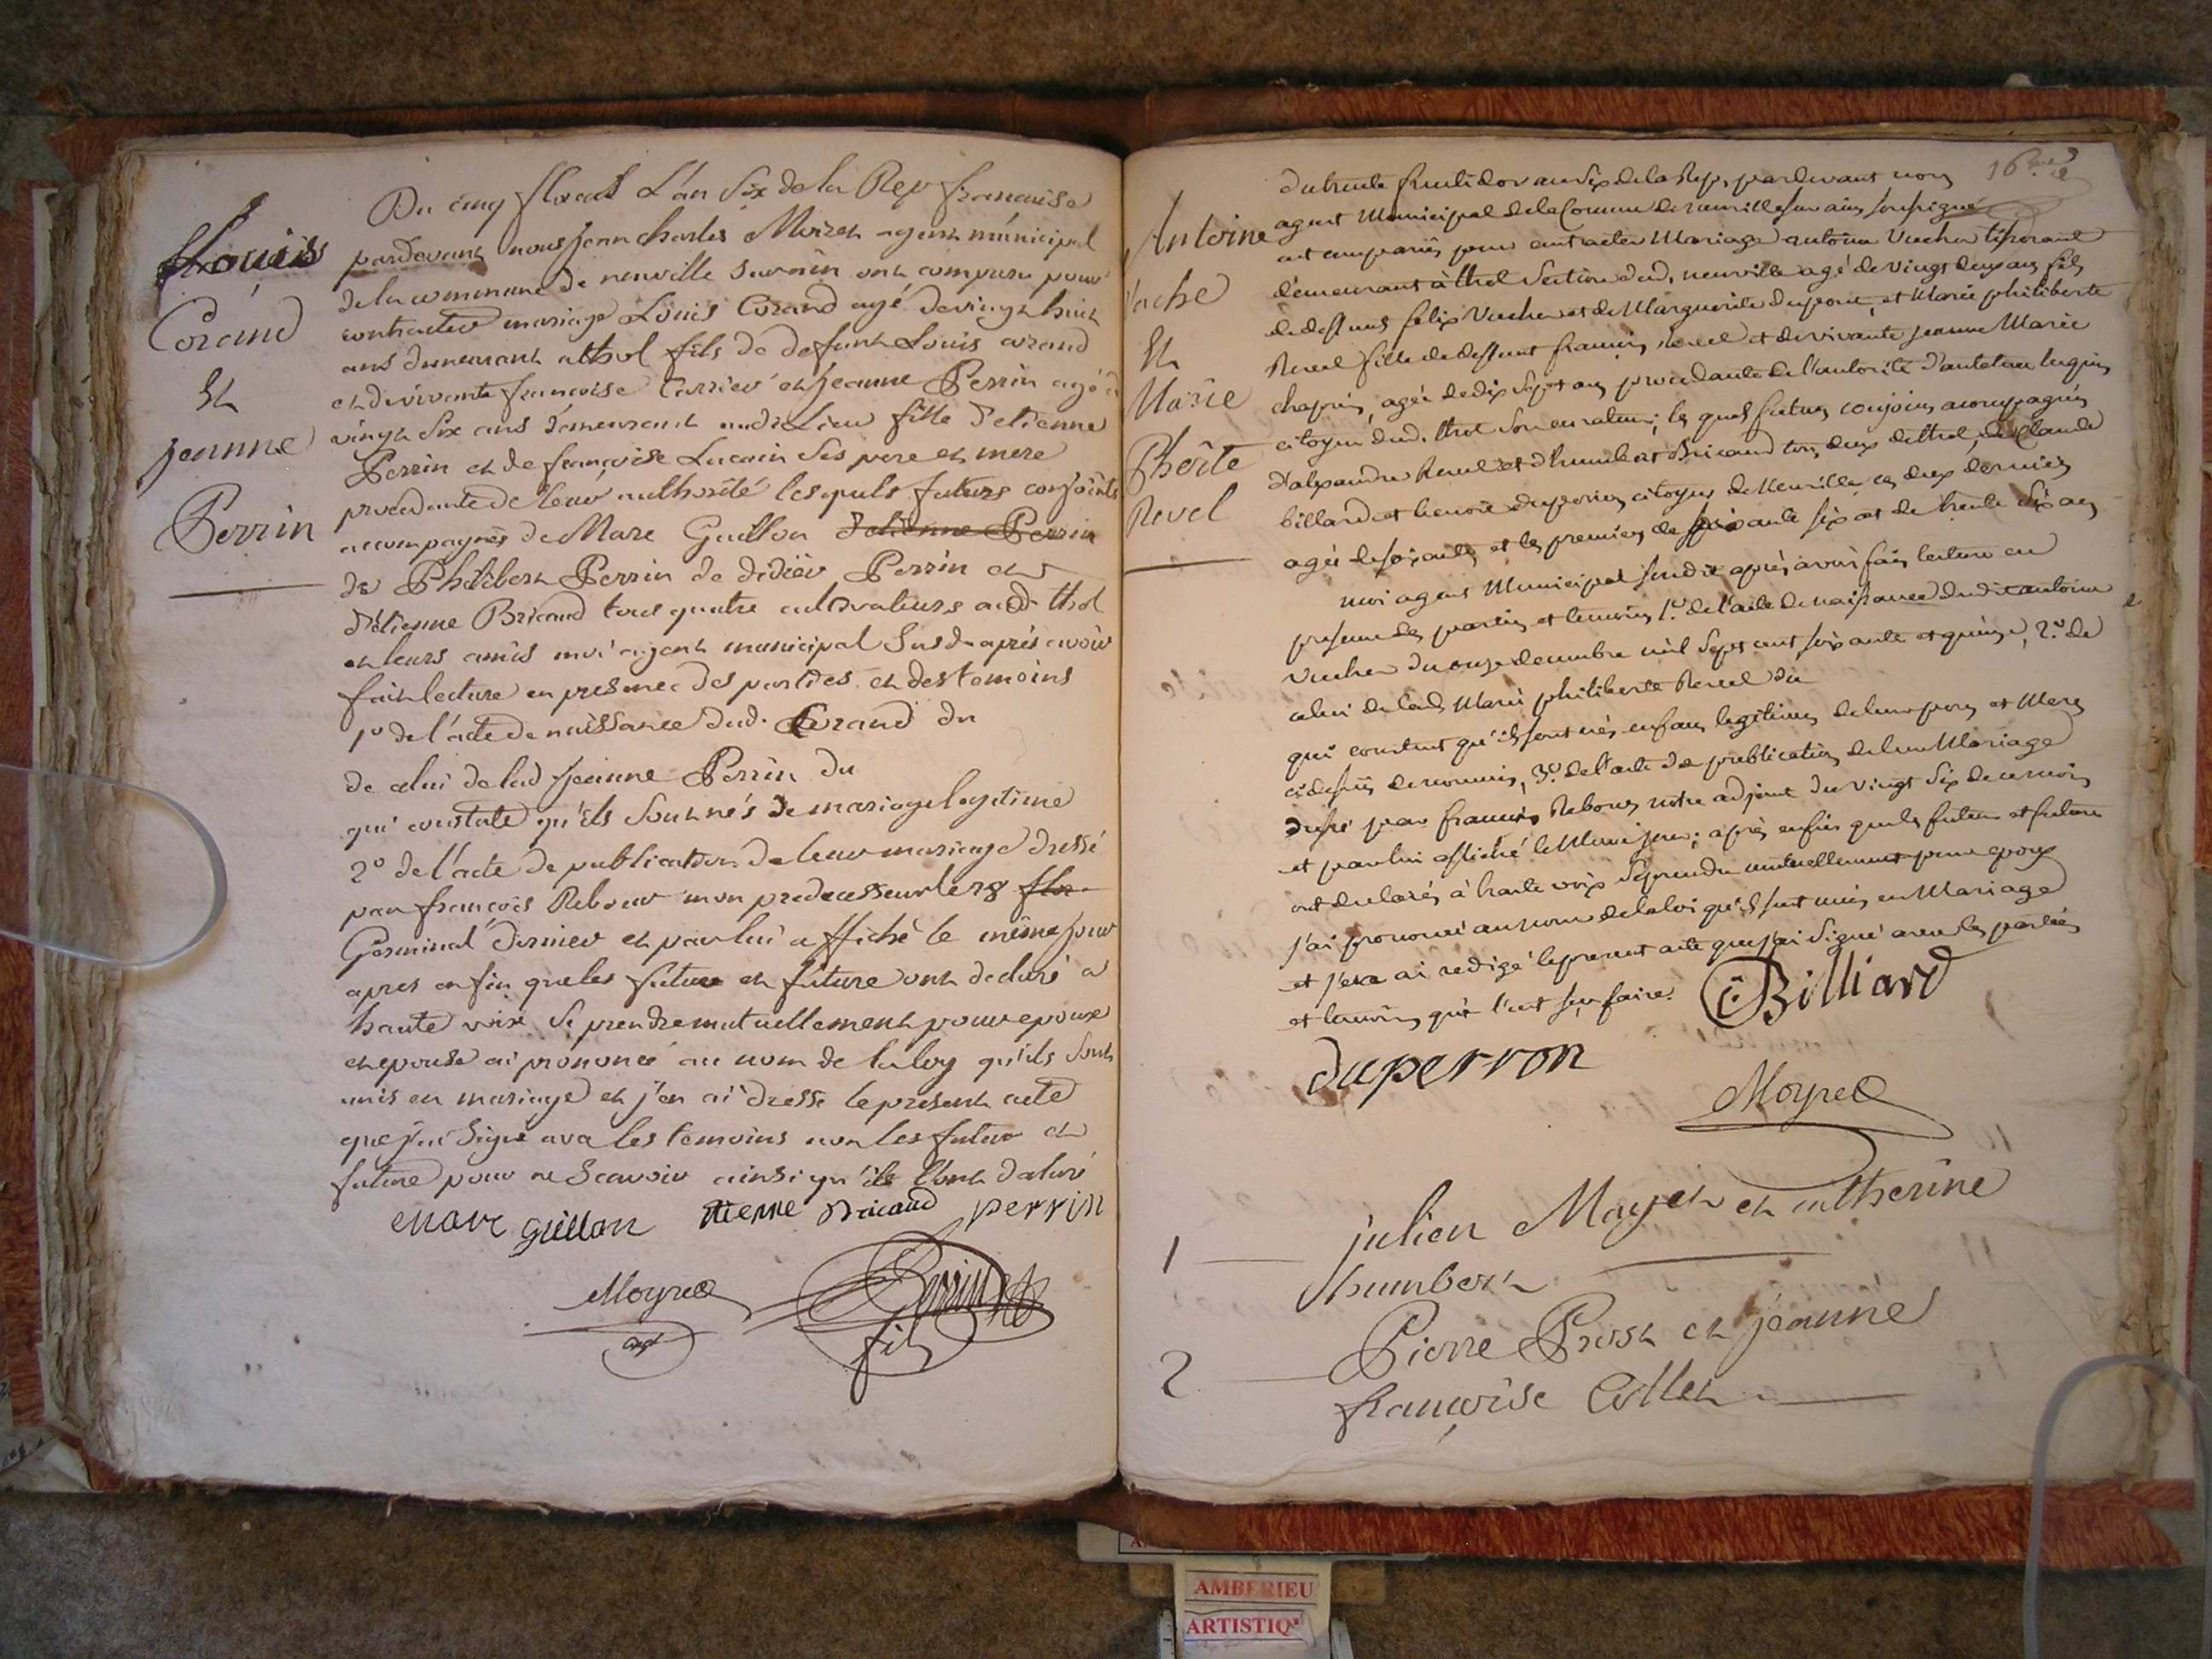 Louis
Corand
Et
jeanne
Perrin
Du cinq floreal L'an Six de la Rep francaise
pardevant nous Jean charles Moiret agent municipal
de la commune de neuville sur ain ont comparu pour
contracter mariage Louis Corand agé de vingt huit
ans demeurant a thol fils de defunt Louis corand
et de vivante francoise Carrier et Jeanne Perrin agée de
vingt Six ans demeurant audit lieu fille d'etienne
Perrin et de françoise Lucain Ses pere et mere
procedante de leur authorité lesquels futurs conjoints
accompagnés de Marc Guillon d'etienne Perrin
de Philibert Perrin de didier Perrin et
d'etienne Bricand tous quatre cultivateurs aud. thol
et leurs amis moi agent municipal Susdt après avoir
fait lecture en presence des parties et des temoins
1º de l'acte de naissance dud. Corand du
de celui de lad Jeanne Perrin du
qui constate qu'ils Sont nés de mariage legitime
2º de l'acte de publication de leur mariage dressé
par françois Rebour mon predecesseur le 28 flor.
Germinal dernier et par lui affiché le même jour
apres enfin que les future et future ont declaré a
haute voix Se prendre mutuellement pour epoux
et epouse ai prononcé au nom de la loy qu'ils Sont
unis en mariage et j'en ai dressé le present acte
que j'ai Signé avec les temoins non les futur et
future pour ne Scavoir ainsi qu'ils l'ont declaré
Marc guillon etienne Bricand perrin
Moyret
agt
Perrin
fils
16
Antoine
Vache
Et
Marie
Pherte
Revel
du trente fructidor an Six de la Rep, pardevant nous
agent Municipal de la Comune de neuville sur ain soussigné
ont comparus pour contracter Mariage antoine Vucher tisserant
demeurant à thol Section dud. neuville agé de vingt deux ans fils
de deffunt felix Vucher et de Marguerite dupont, et Marie philiberte
Revel fille de deffunt francois revel et de vivante jeanne Marie
agée de dix Sept ans procedante de l'autorité d'antelme
citoyen dud. thol Son curateur; les quels futurs conjoins acompagnés
d'alexandre Revel et d'humbert Bricand tous deux de thol, de Claude
billiard et benoit duperron citoyens de Neuville, ces deux derniers
agés de soixante, et les premiers de soixante six et de trente six ans
moi agent Municipal Susdit après avoir fait lecture en
presence des parties et temoins 1º. de l'acte de naissance dudit antoine
Vucher du onze decembre mil Sept cent soixante et quinze, 2º. de
celui de lad. Marie philiberte Revel du
qui constent qu'ils sont nés enfans legitimes de leurs peres et Meres
ci dessus denommés, 3º. de l'acte de publication de leur Mariage
dressé par francois Rebour notre adjoint du vingt Six de ce mois
et par lui affiché le Meme jour; après enfin que les futur et future
ont declarés à haute voix Se prendre mutuellement pour epoux
j'ai prononcé au nom de la loi qu'ils sont unis en Mariage
et j'en ai redigé le present acte que j'ai Signé avec les parties
et temoins qui l'ont sçu faire.
C Billiard
duperron
Moyret
1 julien Moyret et catherine
humbert
2 Pierre Prost et jeanne
françoise Collet
AMBERIEU
ARTISTIQ